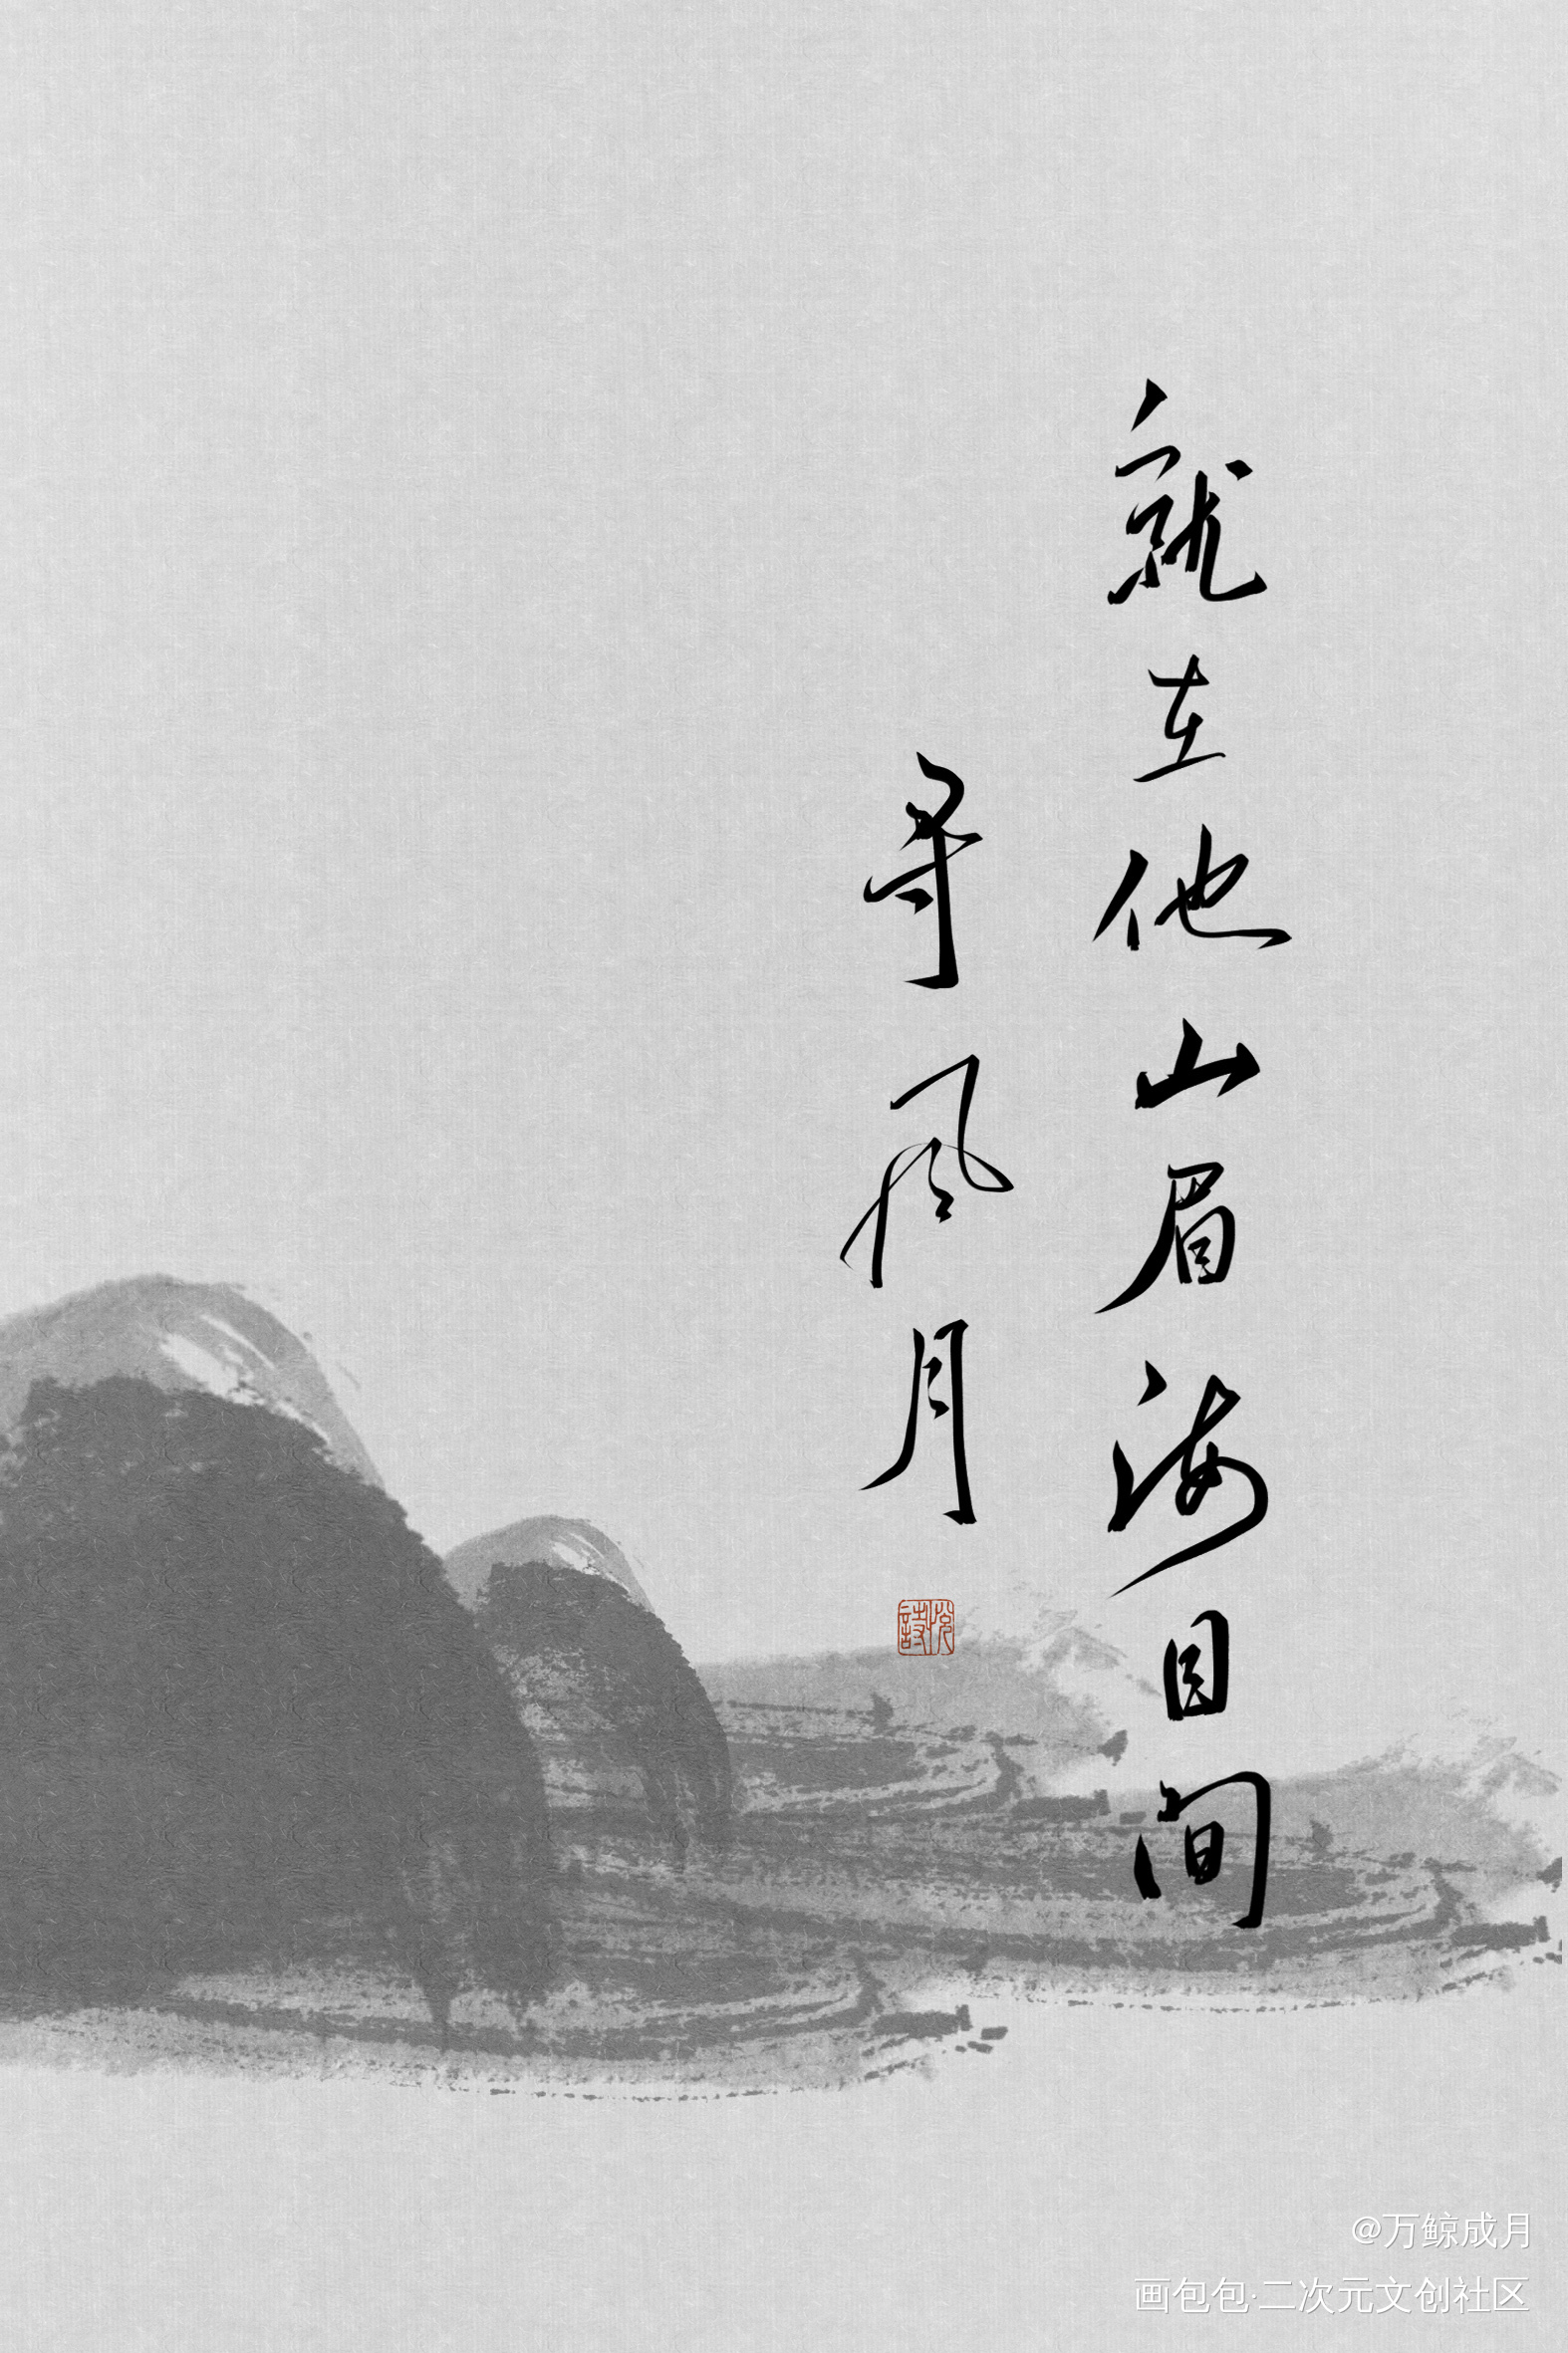 就在他山眉海目间
寻风月
悦诗
@万鲸成月
画包包·二次元文创社区